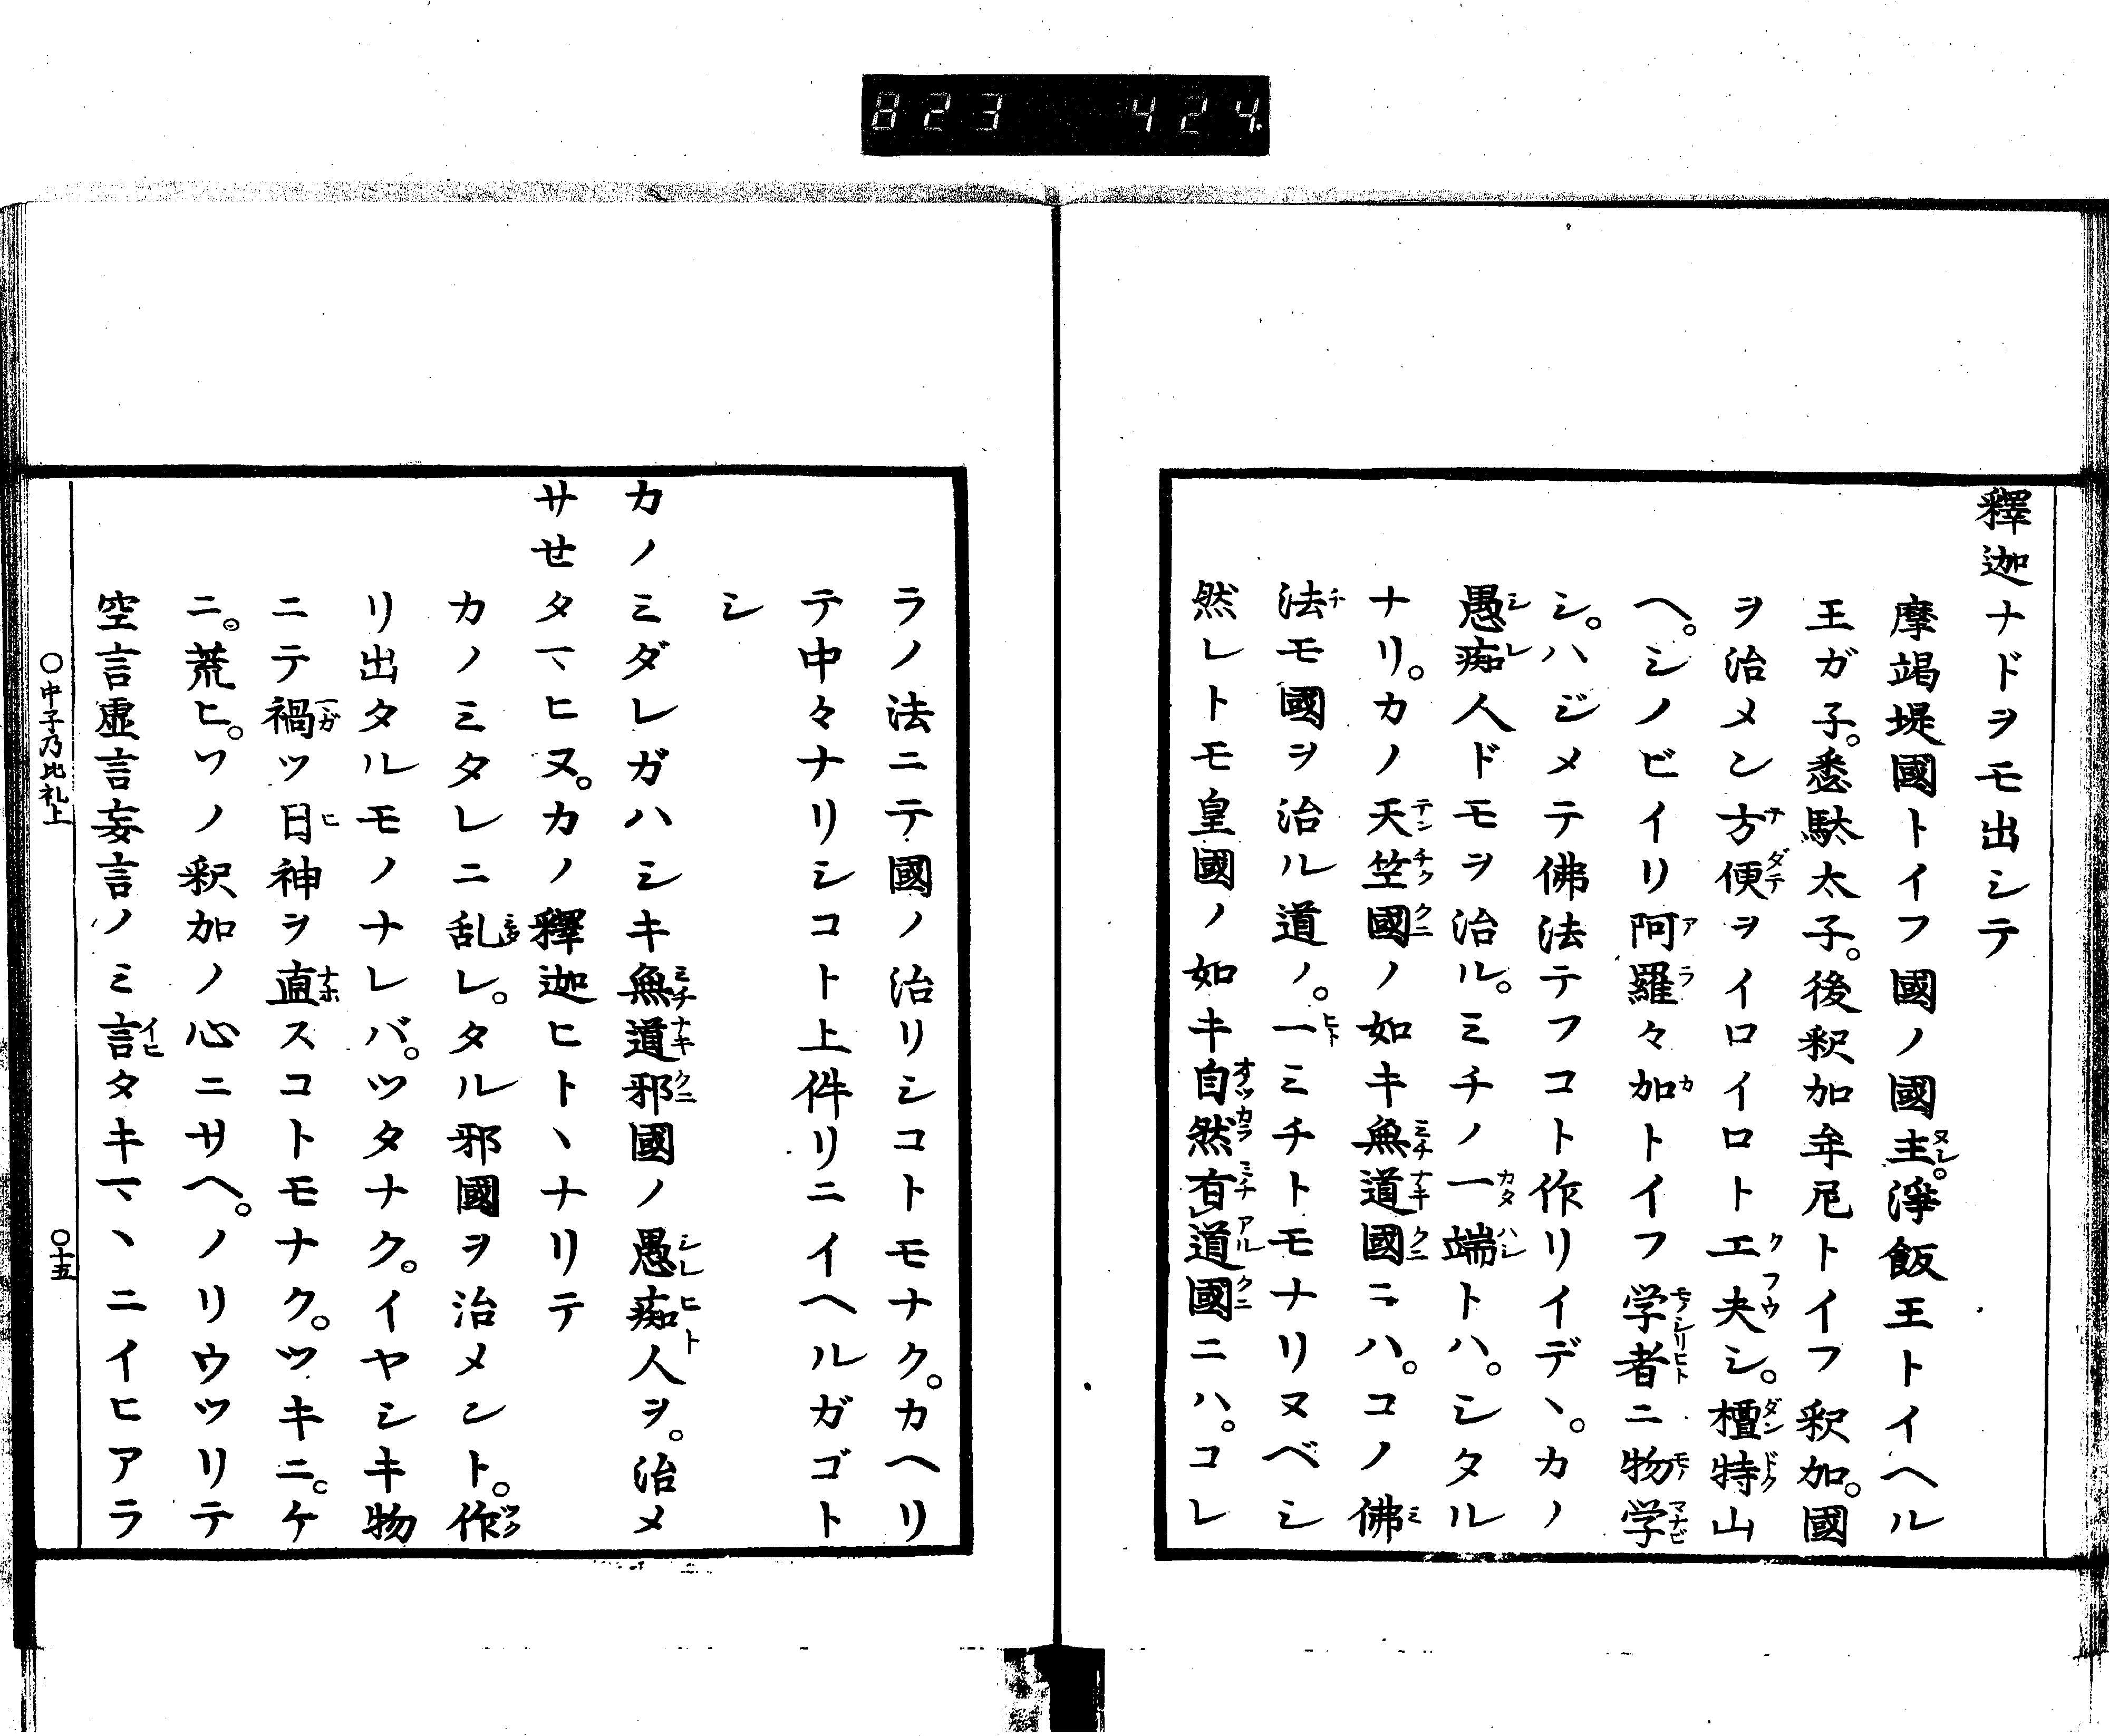 823 424.
釋迦ナドヲモ出シテ
摩竭堤國トイフ國ノ國主。淨飯王トイヘル
王ガ子。悉駄太子。後釈加牟尼トイフ釈加。國
ヲ治メン方便ヲイロイロト工夫シ。檀特山
ヘ。シノビイリ阿羅々加トイフ学者ニ物学
シ。ハジメテ佛法テフコト作リイデヽ。カノ
愚痴人ドモヲ治ル。ミチノ一端トハ。シタル
ナリ。カノ天竺國ノ如キ無道國ニハ。コノ佛
法モ國ヲ治ル道ノ。一ミチトモナリヌベシ
然レトモ皇國ノ如キ自然有道國ニハ。コレ
ラノ法ニテ國ノ治リシコトモナク。カヘリ
テ中々ナリシコト上件リニイヘルガゴト
シ
カノミダレガハシキ無道邪國ノ愚痴人ヲ。治メ
サセタマヒヌ。カノ釋迦ヒトヽナリテ
カノミタレニ乱レ。タル邪國ヲ治メント。作
リ出タルモノナレバ。ツタナク。イヤシキ物
ニテ禍ツ日神ヲ直スコトモナク。ツキニ。ケ
ニ。荒ヒ。ソノ釈加ノ心ニサヘ。ノリウツリテ
空言虚言妄言ノミ言タキマヽニイヒアラ
○中子乃比礼上
○十五